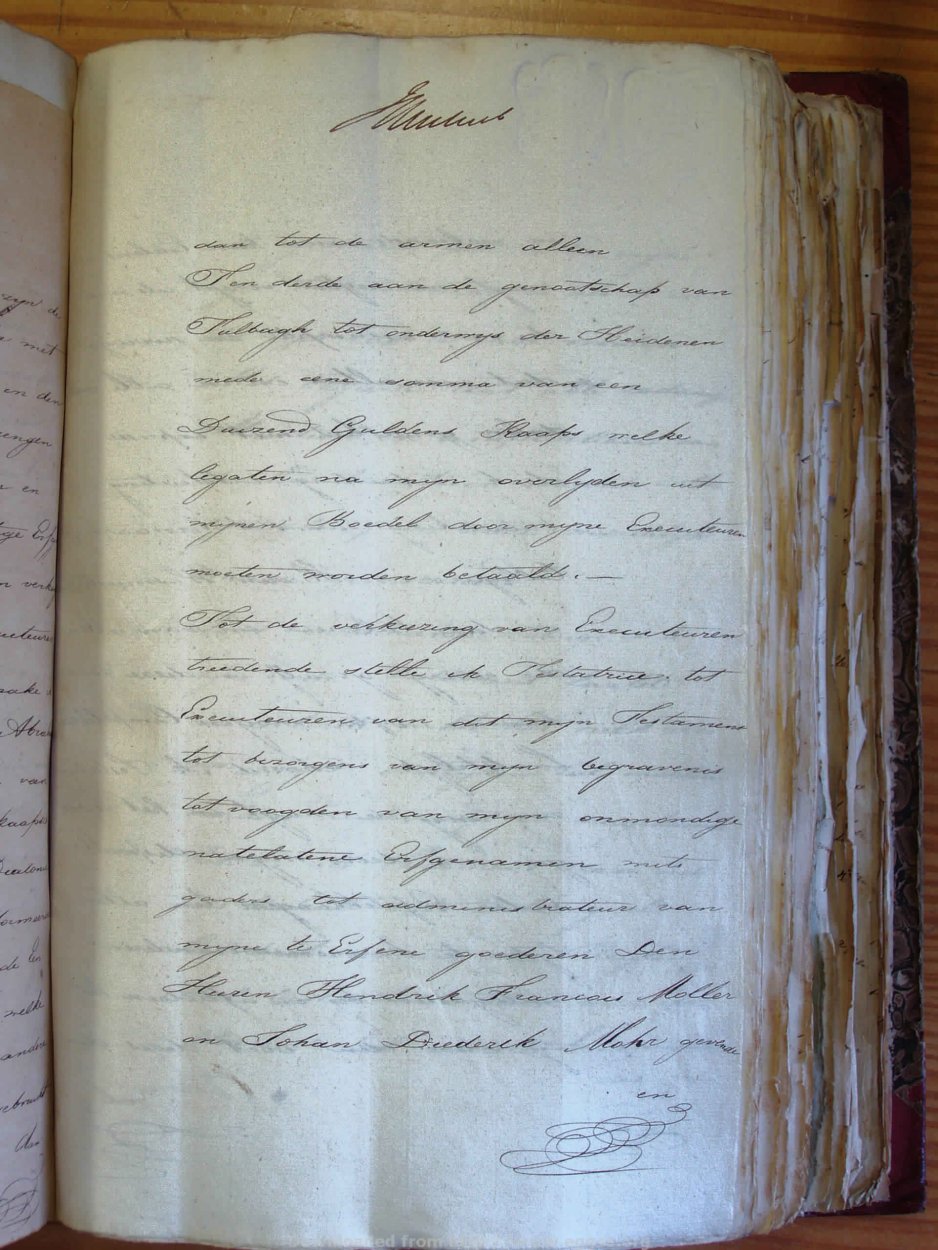 dan tot de armen alleen
Ten derde aan de genootschap van
Tulbagh tot onderwys der Heidenen
mede eene somma van een
Duizend Guldens Kaaps welke
legaten na myn overlyden uit
mynen Boedel door myne Executeuren
moeten worden betaald. —
Tot de verkiezing van Executeuren
treedende stelle ik Testatrice tot
Executeuren van dit myn Testament
tot bezorgens van myn begravenis
tot voogden van myn onmondige
natelatene Erfgenamen mits
gaders tot administrateur van
myne te Erfene goederen Den
Heeren Hendrik Francois Moller
en Johan Diederik Mohr gevende
en
zyn de
met
en den
en
van
welke
andere
dan